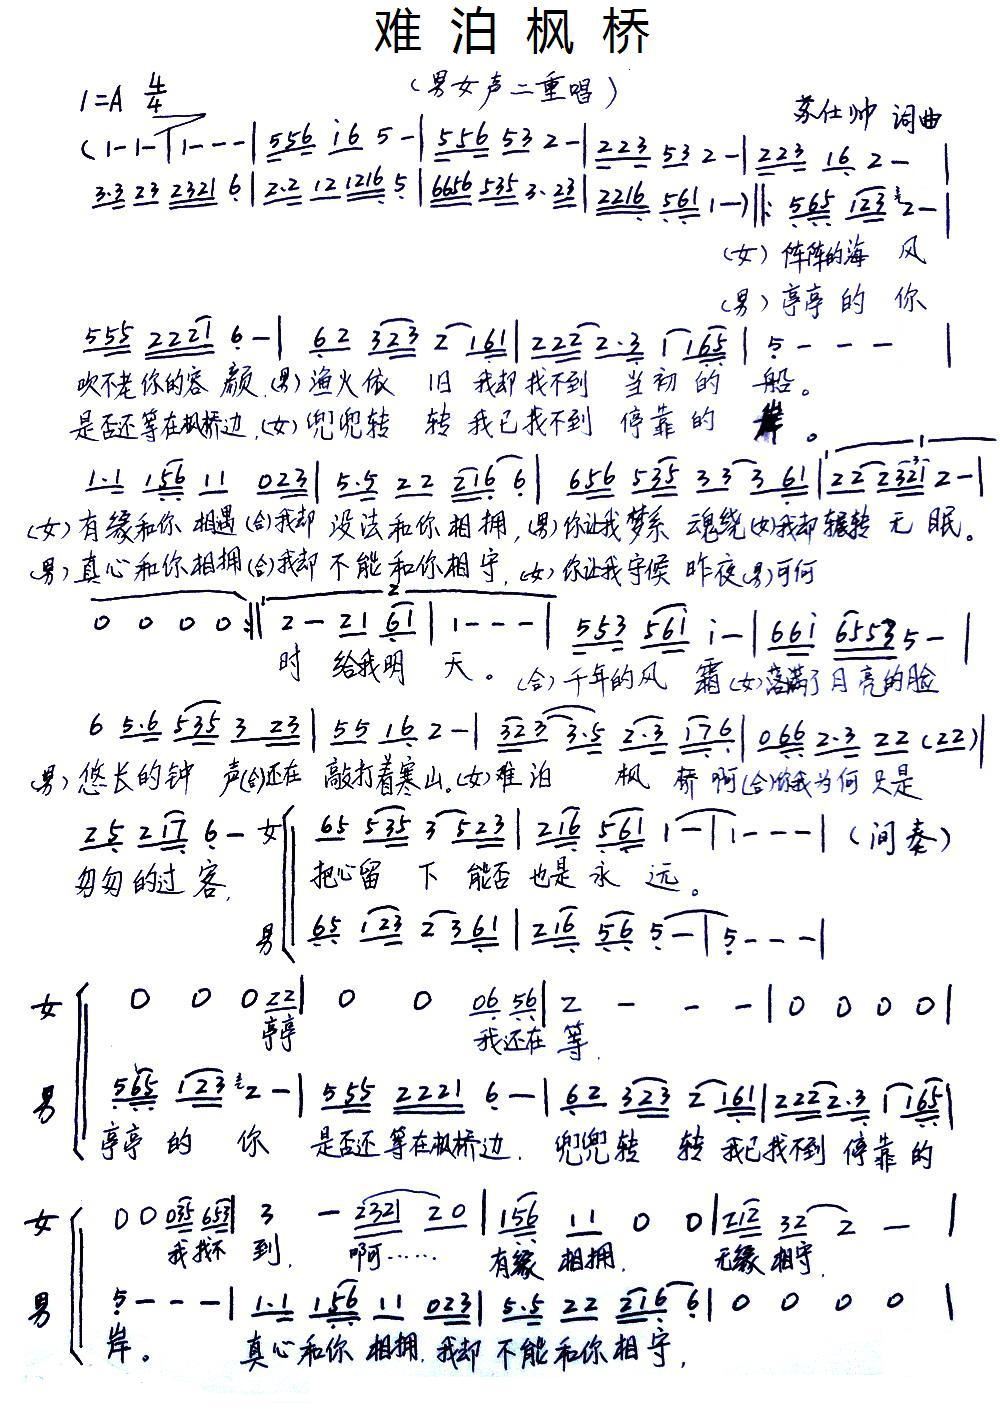 难泊枫桥
(男女声二重唱)
1=A 4/4
苏仕帅 词曲
(1-1-|1---|556 i6 5-|556 53 2-|223 53 2-|223 16 2-|
3·3 23 2321 6|2·2 12 1216 5|6656 535 3·23|2216 561 1-)‖:565 123 2-|
(女)阵阵的海 风
(男)亭亭 的 你
555 2221 6-|62 323 2 161|222 2·3 1 165|5---|
吹不老你的容 颜,(男)渔火依 旧 我却找不到 当初 的 船。
是否还等在枫桥边,(女)兜兜转 转 我已找不到 停靠的 岸。
1·1 156 11 023|5·5 22 216 6|656 535 33 3 61|22 2321 2-|
(女)有缘和你 相遇(合)我却 没法和你相拥,(男)你让我梦系 魂绕(女)我却辗转 无 眠。
(男)真心和你相拥(合)我却 不能和你相守,(女)你让我守候 昨夜(男)可何
0 0 0 0:‖2-21 61|1---|553 561 i-|66i 6553 5-|
时 给我明 天。(合)千年的风 霜(女)落满了月亮的脸
6 5·6 535 3 23|55 16 2-|323 3·5 2·3 176|066 2·3 22(22)|
(男)悠长的钟 声(合)还在 敲打着寒山。(女)难泊 枫 桥啊(合)你我为何只是
25 217 6-女 65 535 3 523|216 561 1-|1---|(间奏)
匆匆的过 客, 把心留 下 能否 也是 永 远。
男 65 123 2 361|216 56 5-|5---|
女 0 0 0 22|0 0 06 56|2 - - -|0 0 0 0|
亭亭 我还在 等,
男 565 123 2-|555 2221 6-|62 323 2 161|222 2·3 1 165|
亭亭 的 你 是否还等在枫桥边, 兜兜转 转 我已找不到 停靠的
女 0 0 035 653|3 - 2321 20|156 11 0 0|212 32 2 -|
我找不 到, 啊…… 有缘 相拥, 无缘 相守,
男 5---|1·1 156 11 023|5·5 22 216 6|0 0 0 0|
岸。 真心和你 相拥,我却 不能和你相守,